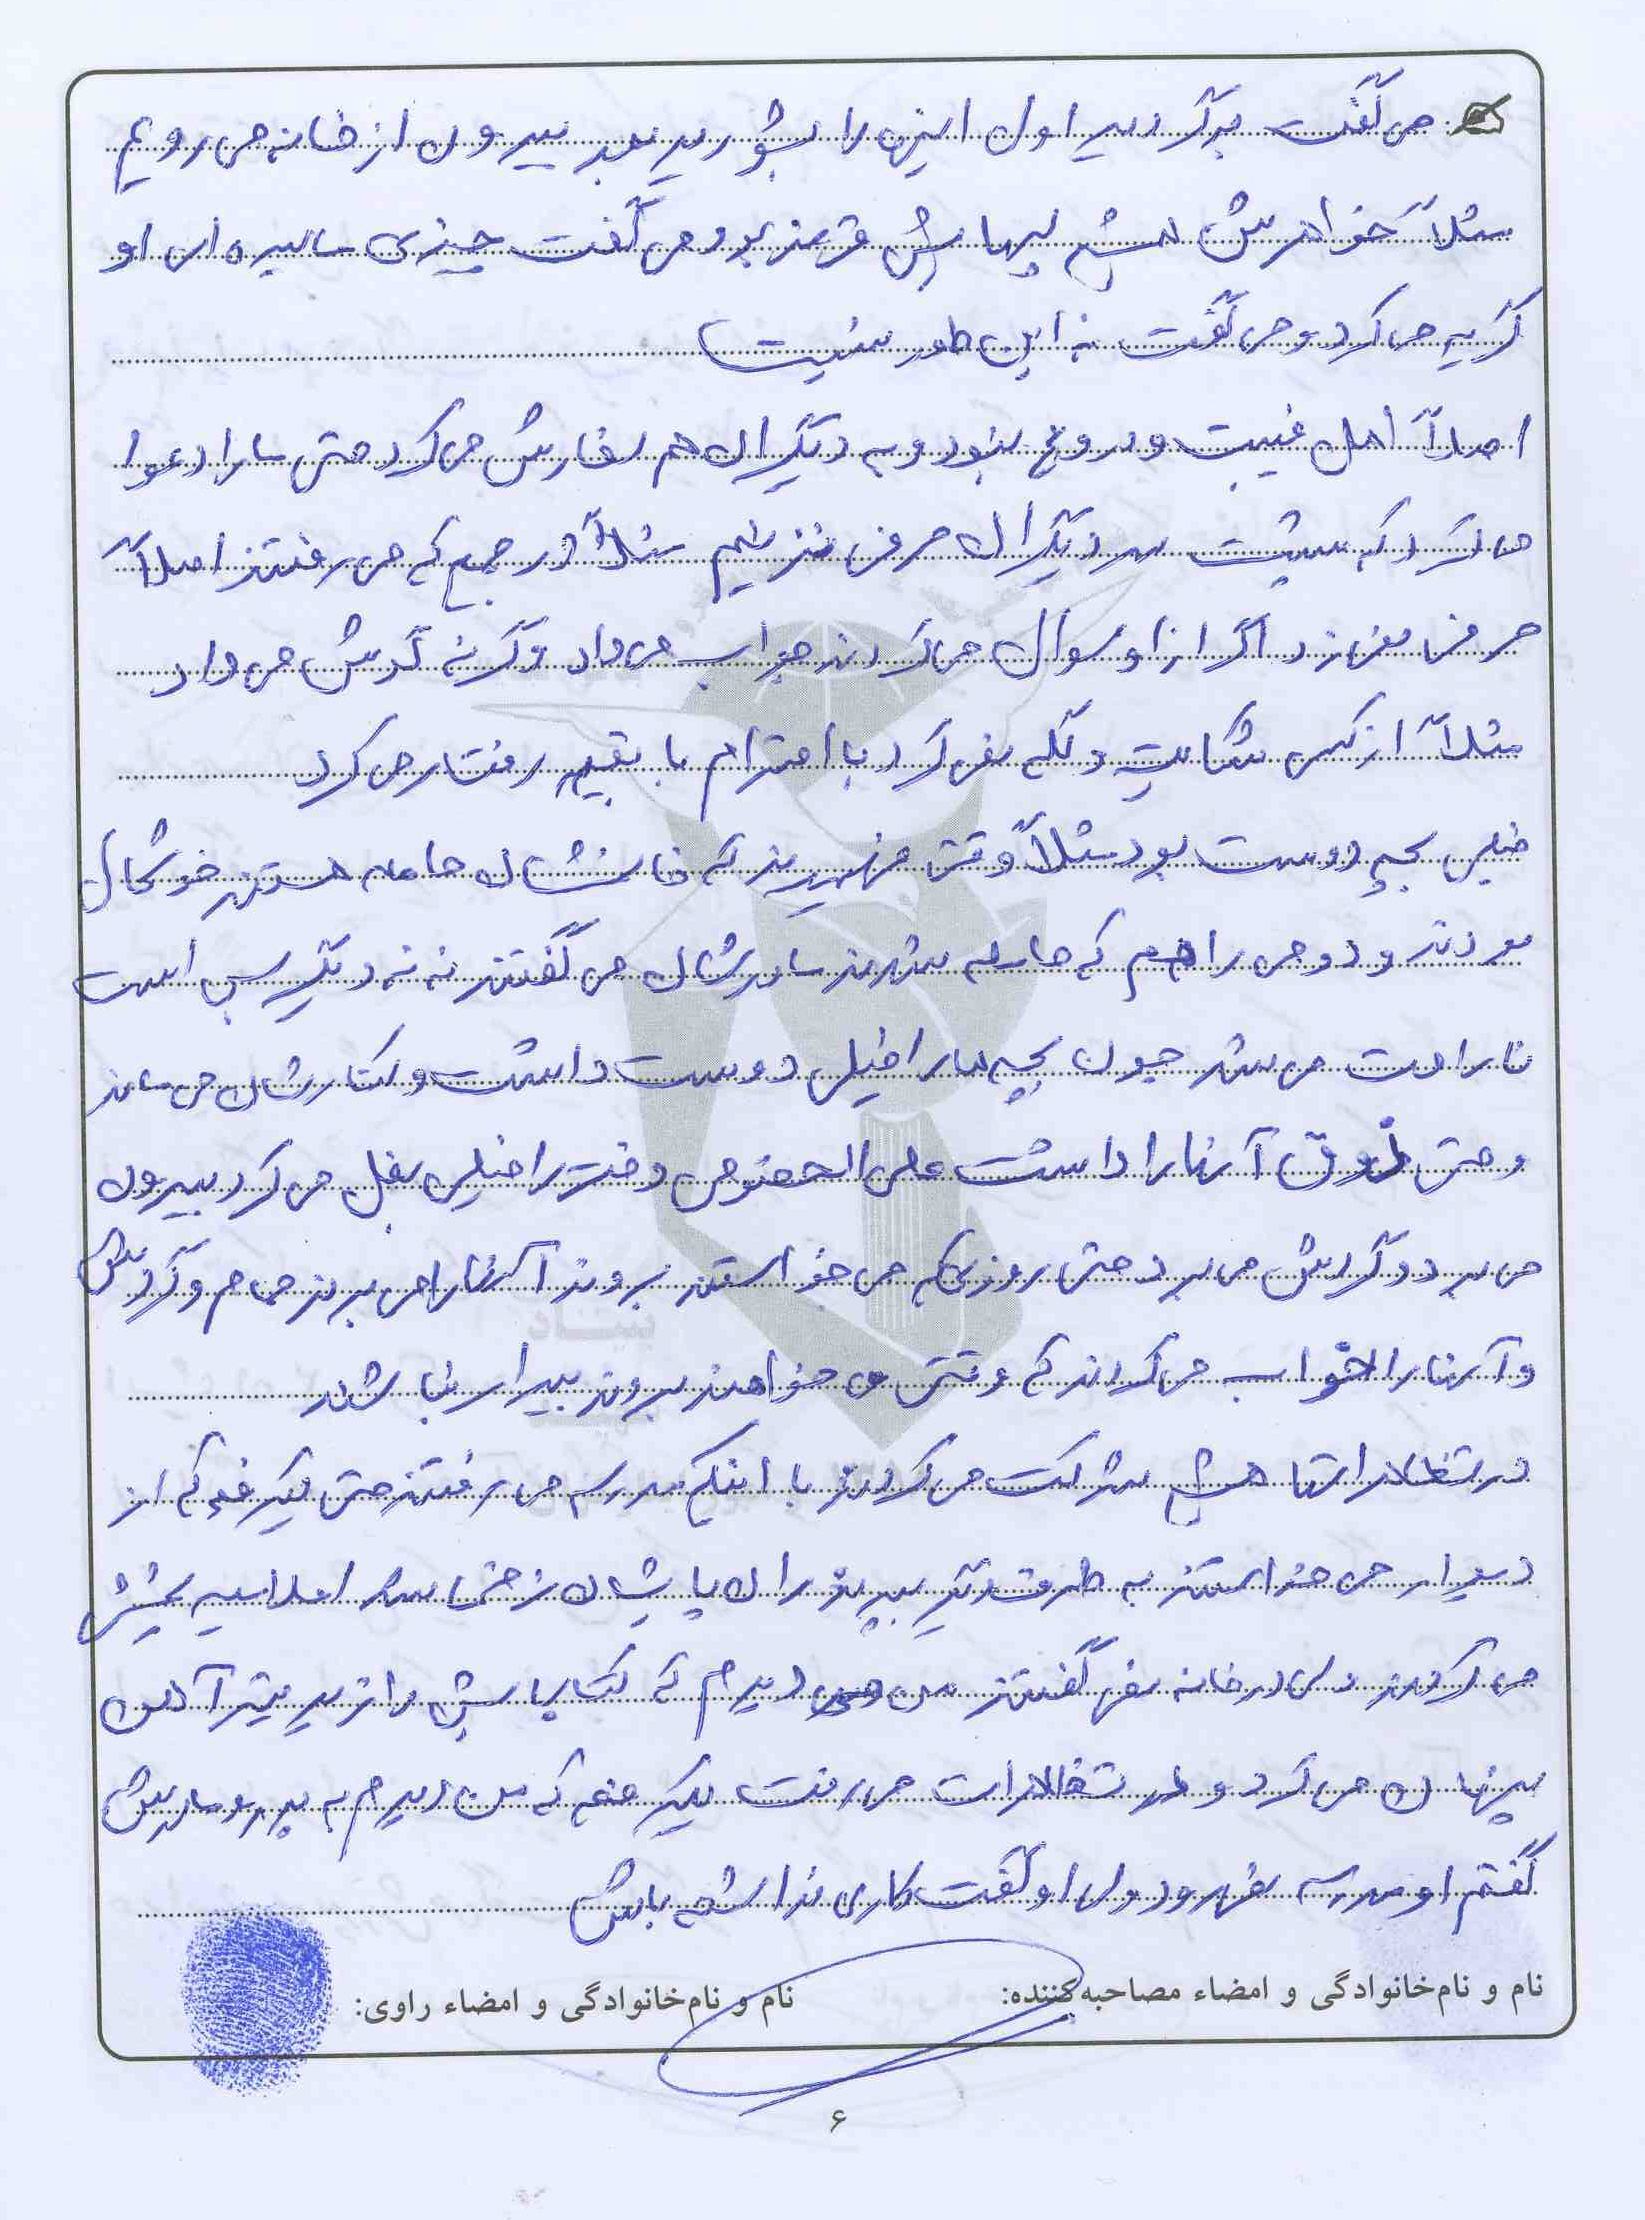 می گفت برگردید اول اینها را بشورید بعد بیرون از خانه می رویم
مثلاً خواهرش همیشه لبهایش قرمز بود می گفت چیزی مالیده ای او
گریه می کرد و می گفت نه این طور نیست
اصلاً اهل غیبت و دروغ نبود و به دیگران هم سفارش می کرد حتی ما را دعوا
می کرد که پشت سر دیگران حرف نزنیم مثلاً در جمع که می رفتند اصلاً
حرف نمی زد اگر از او سوال می کردند جواب می داد وگرنه گوش می داد
مثلاً از کسی شکایت و گله نمی کرد با احترام با بقیه رفتار می کرد
خیلی بچه دوست بود مثلاً وقتی فهمیدند که خانمشان حامله هستند خوشحال
بودند و دومی را هم که حامله شدند مادرشان می گفتند نه نه دیگر بس است
ناراحت می شد چون بچه ها را خیلی دوست داشت و کنارشان می ماند
و حتی ذوق آنها را داشت علی الخصوص دختر را خیلی بغل می کرد بیرون
می برد و گردش می برد حتی روزی که می خواستند بروند آنها را می بردند حمام و گردش
و آنها را خواب می کردند که وقتی می خواهند بروند بیدار نباشند
در تظاهرات هم شرکت می کردند با اینکه مدرسه می رفتند حتی یک دفعه که از
دیوار می خواستند به طرف دیگر بپرند ران پایشان زخمی شد اعلامیه پخش
می کردند ولی در خانه نمی گفتند من می دیدم که کتابهایش را زیر تیر آهن
پنهان می کرد و به تظاهرات می رفت یک دفعه که من دیدم به پدر و مادرش
گفتم او مدرسه نمی رود ولی او گفت کاری نداشته باش
نام و نام‌خانوادگی و امضاء مصاحبه‌کننده: نام و نام‌خانوادگی و امضاء راوی:
۶